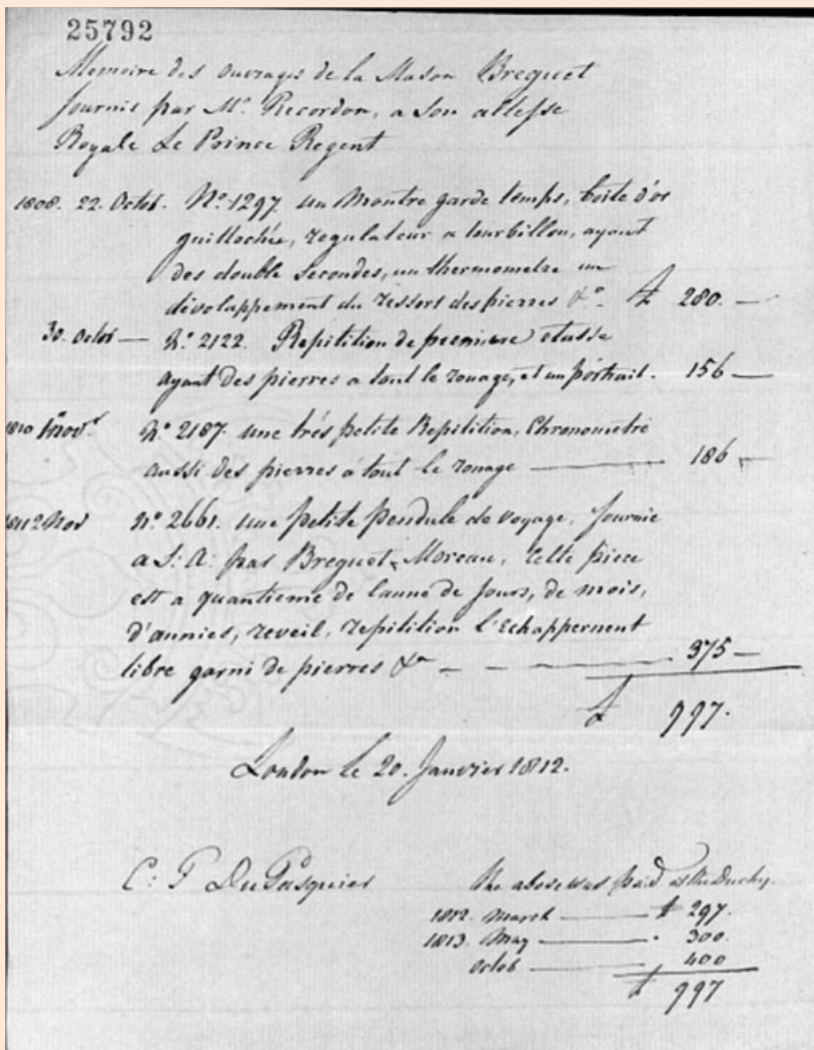 25792
Memoire des ouvrages de la Maison Breguet
fournis par Mr. Recordon, a Son altesse
Royale Le Prince Regent
1808. 22. Octob. No. 1297 un Montre garde temps, boite d'or
guillochée, regulateur a tourbillon, ayant
des double secondes, un thermometre un
dévolappement du ressort des pierres &c. £ 280. —
30. Octob — No. 2122. Repitition de premiere classe
ayant des pierres a tout le rouage, et un portrait. 156 —
1810 Nov. No 2187. une trés petite Repitition, Chronometre
aussi des pierres à tout le rouage — 186 —
2 Nov No. 2661. une petite pendule de voyage, fournie
a S: A: par Breguet, Moreau, Cette piece
est a quantieme de l'anné de Jours, de mois,
d'annies, reveil, repitition l'Echappement
libre garni de pierres &c — 375 —
£ 997.
London le 20. Janvier 1812.
C: T DuPasquier
The above was paid at the Duchy.
1812. March — £ 297.
1813. May — 300.
Octob — 400
£ 997